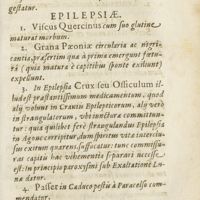 gestatur.
EPILEPSIÆ.
1. Viscus Quercinus cum suo glutine
maturat morbum.
2. Grana Pæoniæ circularia ac nigri-
cantia, præsertim quæ à prima emergunt fætu-
râ (quia matura è capitibus sponte exiliunt)
expellunt.
3. In Epilepsia Crux seu Ossiculum il-
lud est præstantissimum medicamentum, quod
alij volunt in Craniis Epilepticorum, alij verò
in strangulatorum, ubi
tur, quia quilibet ferè strangulandus Epilepsia
in Agone corripitur, dum spiritus vitæ interci-
dit eorum quærens suffocatur: tunc commissuras
capitis hac vehementiâ separari necesse
est: in principio paroxysmi sub Exaltatione Lu-
næ datur.
4. Passer in Caducopestis à Paracelso com-
mendatur.